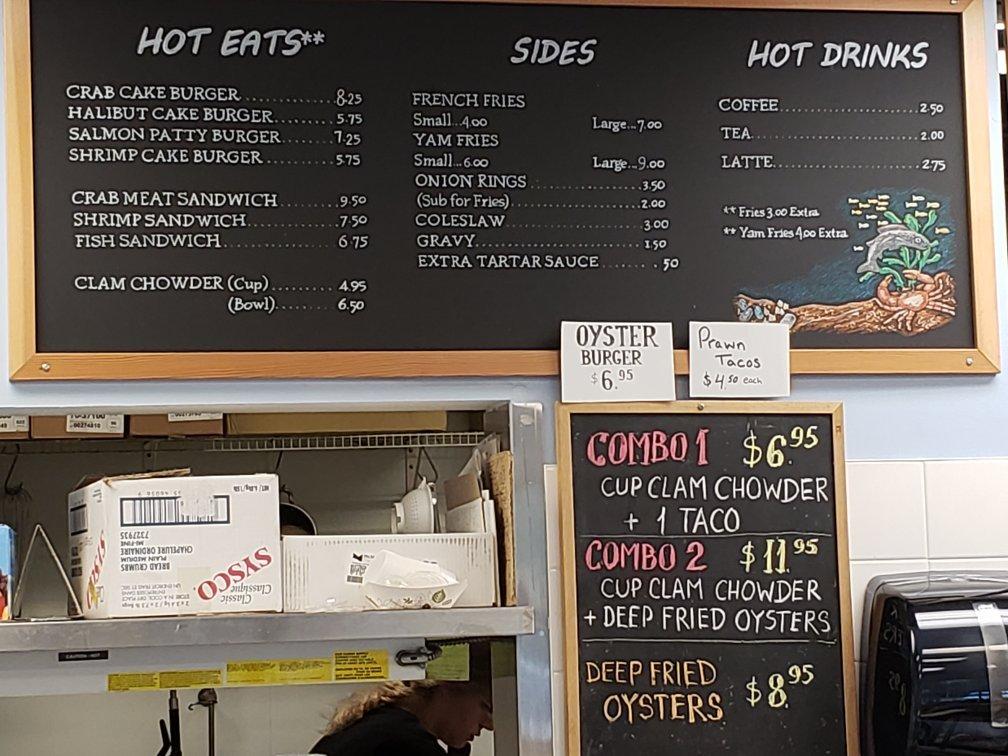 HOT EATS**
CRAB CAKE BURGER 8.25
HALIBUT CAKE BURGER 5.75
SALMON PATTY BURGER 7.25
SHRIMP CAKE BURGER 5.75
CRAB MEAT SANDWICH 9.50
SHRIMP SANDWICH 7.50
FISH SANDWICH 6.75
CLAM CHOWDER (Cup) 4.95
(Bowl) 6.50
SIDES
FRENCH FRIES
Small...4.00 Large...7.00
YAM FRIES
Small...6.00 Large...9.00
ONION RINGS 3.50
(Sub for Fries) 2.00
COLESLAW 3.00
GRAVY 1.50
EXTRA TARTAR SAUCE .50
HOT DRINKS
COFFEE 2.50
TEA 2.00
LATTE 2.75
** Fries 3.00 Extra
** Yam Fries 4.00 Extra
OYSTER
BURGER
$6.95
Prawn
Tacos
$4.50 each
COMBO 1 $6.95
CUP CLAM CHOWDER
+ 1 TACO
COMBO 2 $11.95
CUP CLAM CHOWDER
+ DEEP FRIED OYSTERS
DEEP FRIED
OYSTERS $8.95
SYSCO
Classic
Classique
BREAD CRUMBS
PLAIN MEDIUM
CHAPELURE ORDINAIRE
MI-FINE
7327935